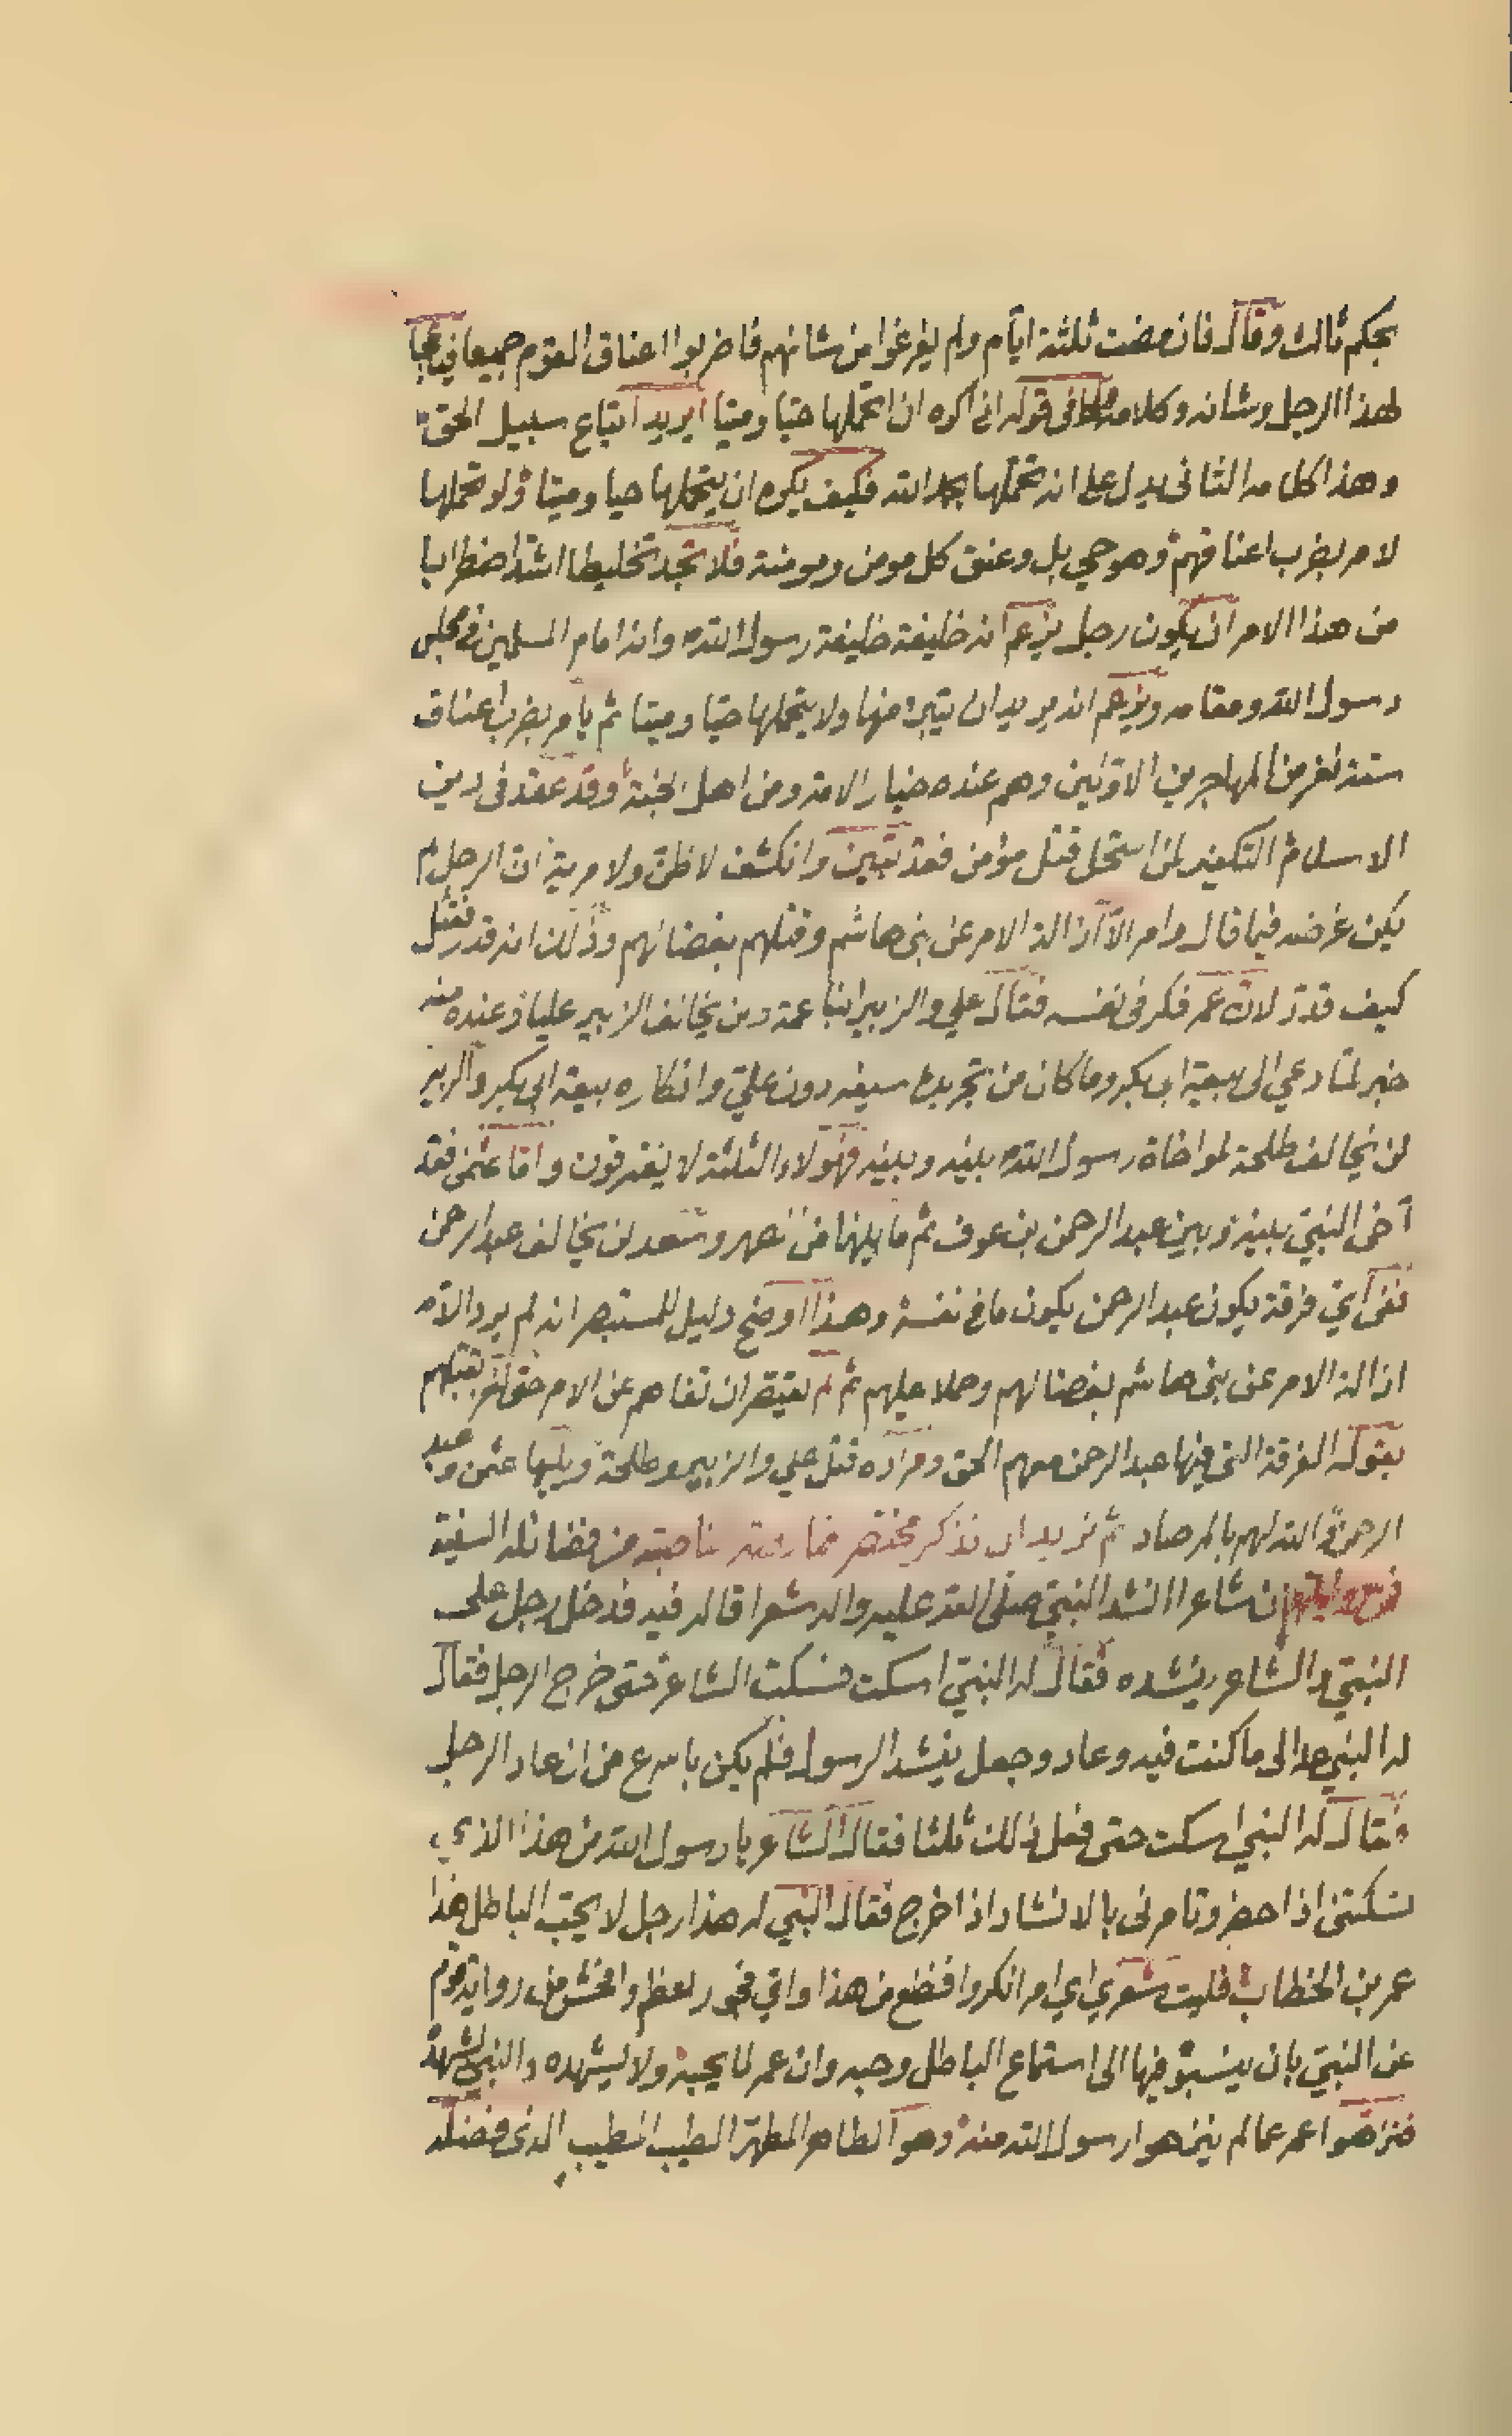 بحكم ثالث وقال فان مضت ثلثة ايام ولم يفرغوا من شانهم فاضربوا اعناق القوم جميعا فيا عجبا
لهذا الرجل وشانه وكلامه في قوله اني اكره ان اتحملها حيا وميتا ايريد اتباع سبيل الحق
وهذا كلامه الثاني يدل على انه تحملها الله فكيف يكره ان يتحملها حيا وميتا ولو تحملها
لامر بضرب اعناقهم وهو حي بل وعنق كل مومن ومومنة فلا تجد تخليطا اشد اضطرابا
من هذا الامر ان يكون رجل يزعم انه خليفة خليفة رسول الله وانه امام المسلمين في مجلس
رسول الله ومقامه ويزعم انه يريد ان يتبرء منها ولا يتحملها حيا وميتا ثم يأمر بضرب اعناق
ستة نفر من المهاجرين الاولين وهم عنده خيار الامة ومن اهل الجنة وقد عقد في دين
الاسلام التكفير لمن استحل قتل مؤمن فقد تبين وانكشف لا ظن ولا مرية ان الرجل لم
يكن غرضه فيما قال وامر الا ازالة الامر عن بني هاشم وقتلهم بغضا لهم وذلك انه قدر فقتل
كيف قدر لان عمر فكر في نفسه فقال علي والزبير ابنا عمة ومن يخالف الزبير عليا وعنده منه
خبر لما دعي الى بيعة ابي بكر وما كان من تجريده سيفه دون علي وانكاره بيعة ابي بكر والزبير
لن يخالف طلحة لمواخاة رسول الله بينه وبينه فهولاء الثلثة لا يفترقون واما عثمن فقد
آخى النبي بينه وبين عبد الرحمن بن عوف ثم ما بينهما من صهر وسعد لن يخالف عبد الرحمن
ففى اي فرقة يكون عبد الرحمن يكون ما في نفسه وهذا اوضح دليل للمستبصر انه لم يرد الا
ازالة الامر عن بني هاشم بغضا لهم وحملا عليهم ثم لم يقتصر ان نفاهم عن الامر حتى امر بقتلهم
بقوله الفرقة التي فيها عبد الرحمن معهم الحق ومراده قتل علي والزبير وطلحة ويليها عثمن وعبد
الرحمن والله لهم بالمرصاد ثم نريد ان نذكر مختصر مما رمته ناصبته من فضائله السنية
ان شاعرا انشد النبي صلى الله عليه واله شعرا قاله فيه فدخل رجل على
النبي والشاعر ينشده فقال له النبي اسكت فسكت الشاعر حتى خرج الرجل فقال
له النبي عد الى ما كنت فيه وعاد وجعل ينشد الرسول فلم يكن باسرع من ان عاد الرجل
فقال له النبي اسكت حتى فعل ذلك ثلثا فقال الشاعر يا رسول الله من هذا الذي
تسكتني اذا حضر وتامرني بالانشاد اذا خرج فقال النبي له هذا رجل لا يحب الباطل هذا
عمر بن الخطاب فليت شعري اي امر انكر وافضع من هذا واي فجور اعظم وافحش من رواية قوم
عن النبي بان ينسبوه فيها الى استماع الباطل وحبه وان عمر لا يحبه ولا يشهده والنبي يشهده
فنزهوا عمر عما لم ينزهوا رسول الله منه وهو الطاهر المطهر الطيب المطيب الذي فضله